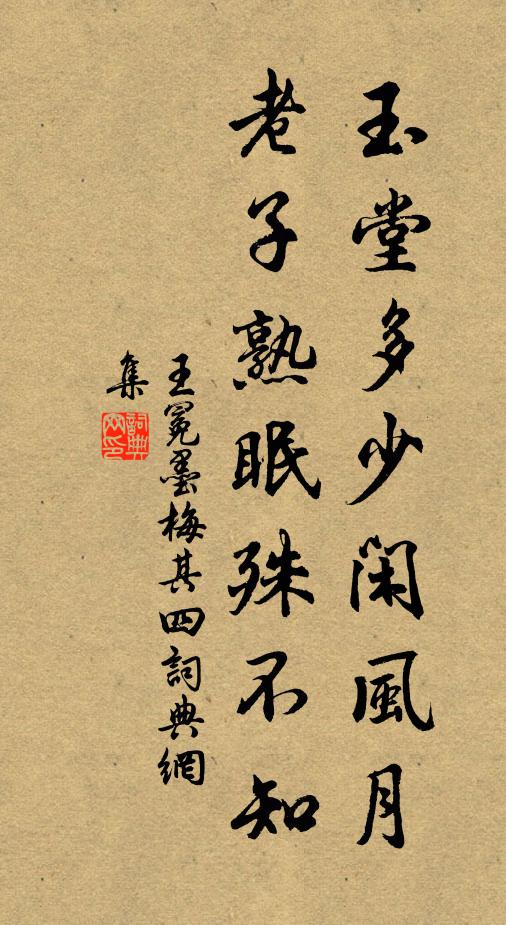 玉堂多少閑風月
老子熟眠殊不知
王冕墨梅其四詞典網
集
詞典網印